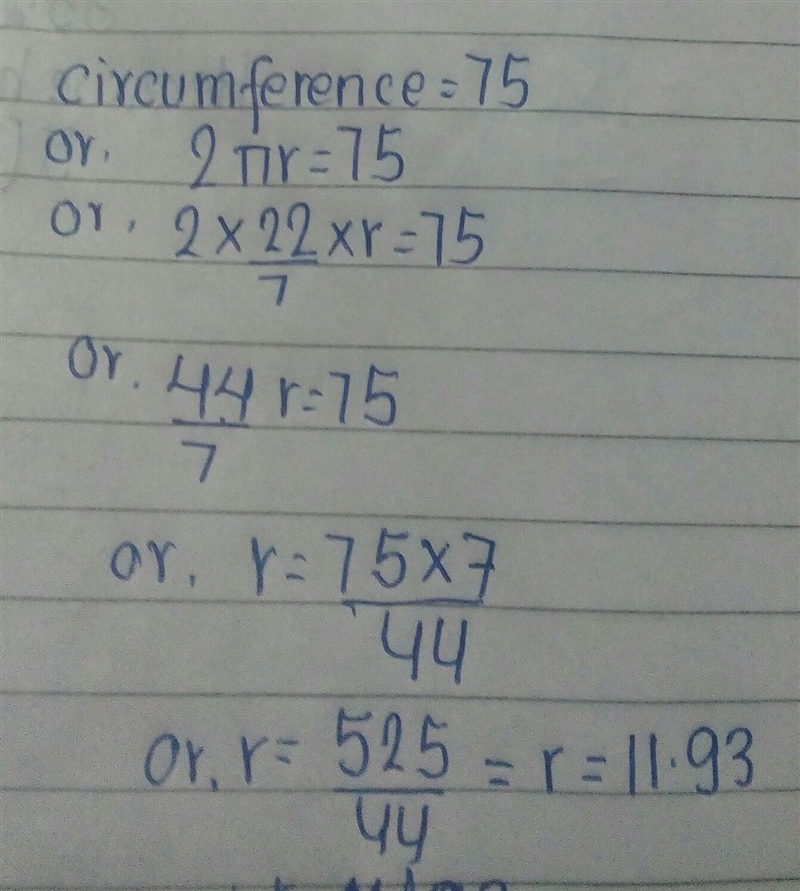 circumference = 75
or. 2πr = 75
or, 2 × 22/7 × r = 75
or. 44/7 r = 75
or, r = 75×7/44
or, r = 525/44 = r = 11.93